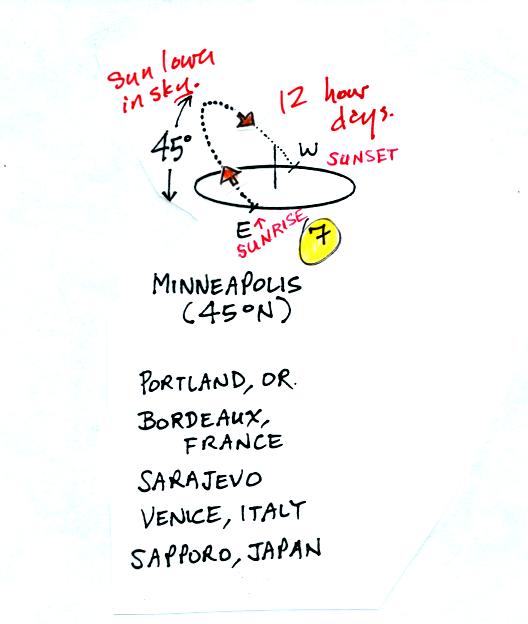 Sun lower
in sky.
12 hour
days.
45°
W
SUNSET
E
SUNRISE
7
MINNEAPOLIS
(45°N)
PORTLAND, OR.
BORDEAUX,
FRANCE
SARAJEVO
VENICE, ITALY
SAPPORO, JAPAN